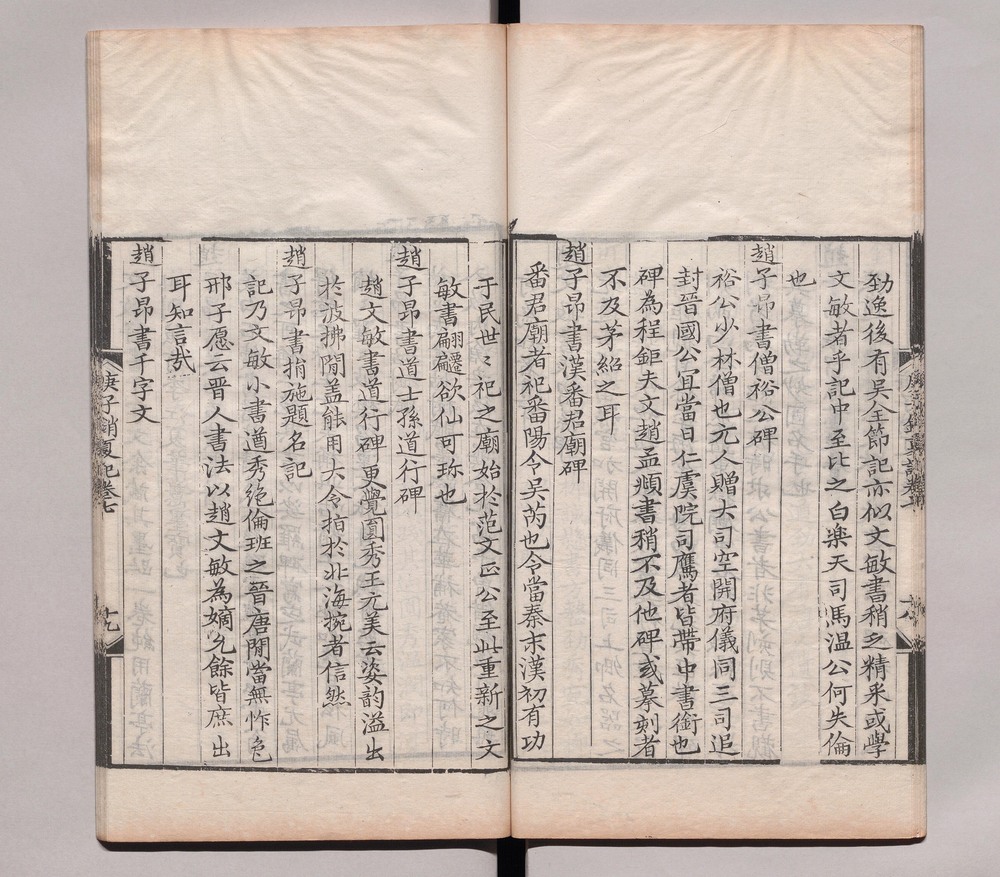 勁逸後有吳全節記亦似文敏書稍乏精采或學
文敏者乎記中至比之白樂天司馬溫公何失倫
也
趙子昻書僧裕公碑
裕公少林僧也元人贈大司空開府儀同三司追
封晉國公宜當日仁虞院司鷹者皆帶中書銜也
碑為程鉅夫文趙孟頫書稍不及他碑或摹刻者
不及茅紹之耳
趙子昻書漢番君廟碑
番君廟者祀番陽令吳芮也令當秦末漢初有功
于民世〻祀之廟始於范文正公至此重新之文
敏書翩䙴欲仙可珎也
趙子昻書道士孫道行碑
趙文敏書道行碑更覺圓秀王元美云姿韵溢出
於波拂閒盖能用大令指於北海捥者信然
趙子昻書捐施題名記
記乃文敏小書遒秀絶倫班之晉唐閒當無怍色
邢子愿云晉人書法以趙文敏為嫡允餘皆庶出
耳知言㦲
趙子昻書千字文
庚子銷夏記卷七
十九